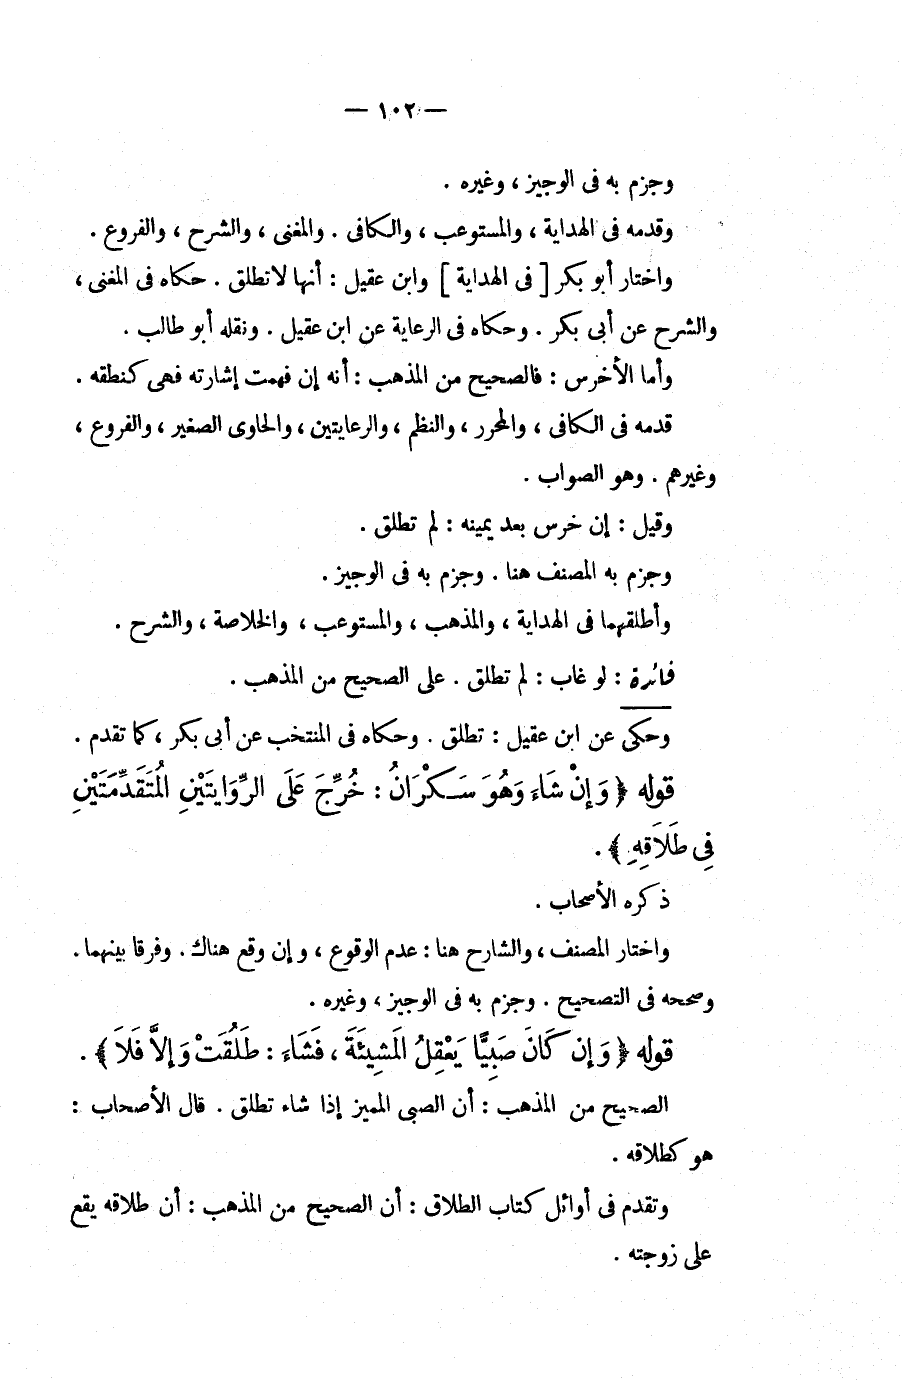 — ١٠٢ —
وجزم به فى الوجيز ، وغيره .
وقدمه فى الهداية ، والمستوعب ، والكافى . والمغنى ، والشرح ، والفروع .
واختار أبو بكر [ فى الهداية ] وابن عقيل : أنها لا تطلق . حكاه فى المغنى ،
والشرح عن أبى بكر . وحكاه فى الرعاية عن ابن عقيل . ونقله أبو طالب .
وأما الأخرس : فالصحيح من المذهب : أنه إن فهمت إشارته فهى كنطقه .
قدمه فى الكافى ، والمحرر ، والنظم ، والرعايتين ، والحاوى الصغير ، والفروع ،
وغيرهم . وهو الصواب .
وقيل : إن خرس بعد يمينه : لم تطلق .
وجزم به المصنف هنا . وجزم به فى الوجيز .
وأطلقهما فى الهداية ، والمذهب ، والمستوعب ، والخلاصة ، والشرح .
فائدة : لو غاب : لم تطلق . على الصحيح من المذهب .
وحكى عن ابن عقيل : تطلق . وحكاه فى المنتخب عن أبى بكر ، كما تقدم .
قوله ﴿ وَإِنْ شَاءَ وَهُوَ سَكْرَانُ : خُرِّجَ عَلَى الرِّوَايَتَيْنِ الْمُتَقَدِّمَتَيْنِ
فِى طَلَاقِهِ ﴾ .
ذكره الأصحاب .
واختار المصنف ، والشارح هنا : عدم الوقوع ، وإن وقع هناك . وفرقا بينهما .
وصححه فى التصحيح . وجزم به فى الوجيز ، وغيره .
قوله ﴿ وَإِن كَانَ صَبِيًّا يَعْقِلُ الْمَشِيئَةَ ، فَشَاءَ : طَلُقَتْ وَإِلاَّ فَلاَ ﴾ .
الصحيح من المذهب : أن الصبى المميز إذا شاء تطلق . قال الأصحاب :
هو كطلاقه .
وتقدم فى أوائل كتاب الطلاق : أن الصحيح من المذهب : أن طلاقه يقع
على زوجته .